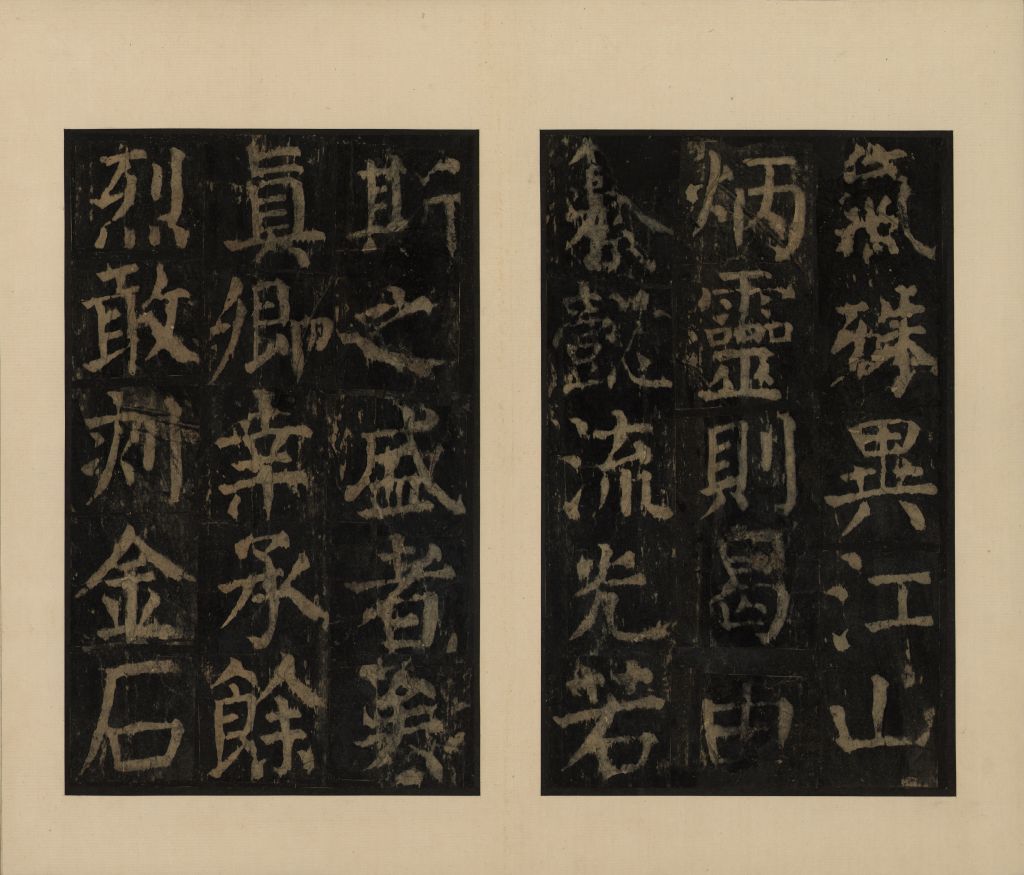 氣殊異江山
炳靈則曷由
懿流光若
斯之盛者
真卿幸承餘
烈敢金石